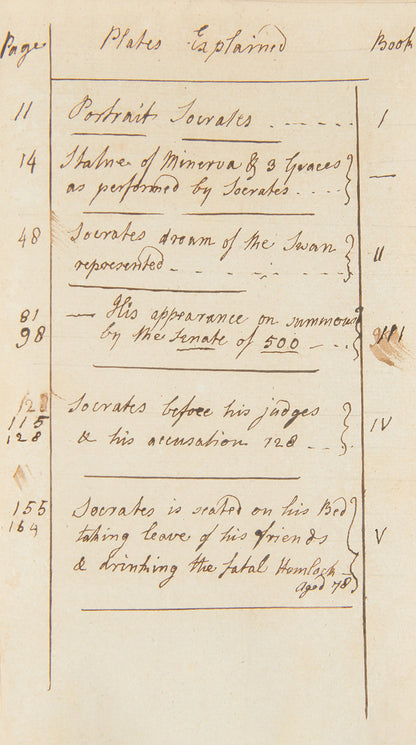 Page Plates Explained Book
11 Portrait Socrates ------ I
14 Statue of Minerva & 3 Graces
as performed by Socrates ---- —
48 Socrates dream of the Swan II
represented - - - - -
81 — His appearance on summons
98 by the Senate of 500 - - - III
Socrates before his judges
115 IV
128 & his accusation 128 - -
155 Socrates is seated on his Bed
164 taking leave of his friends V
& drinking the fatal Hemlock —
aged 78